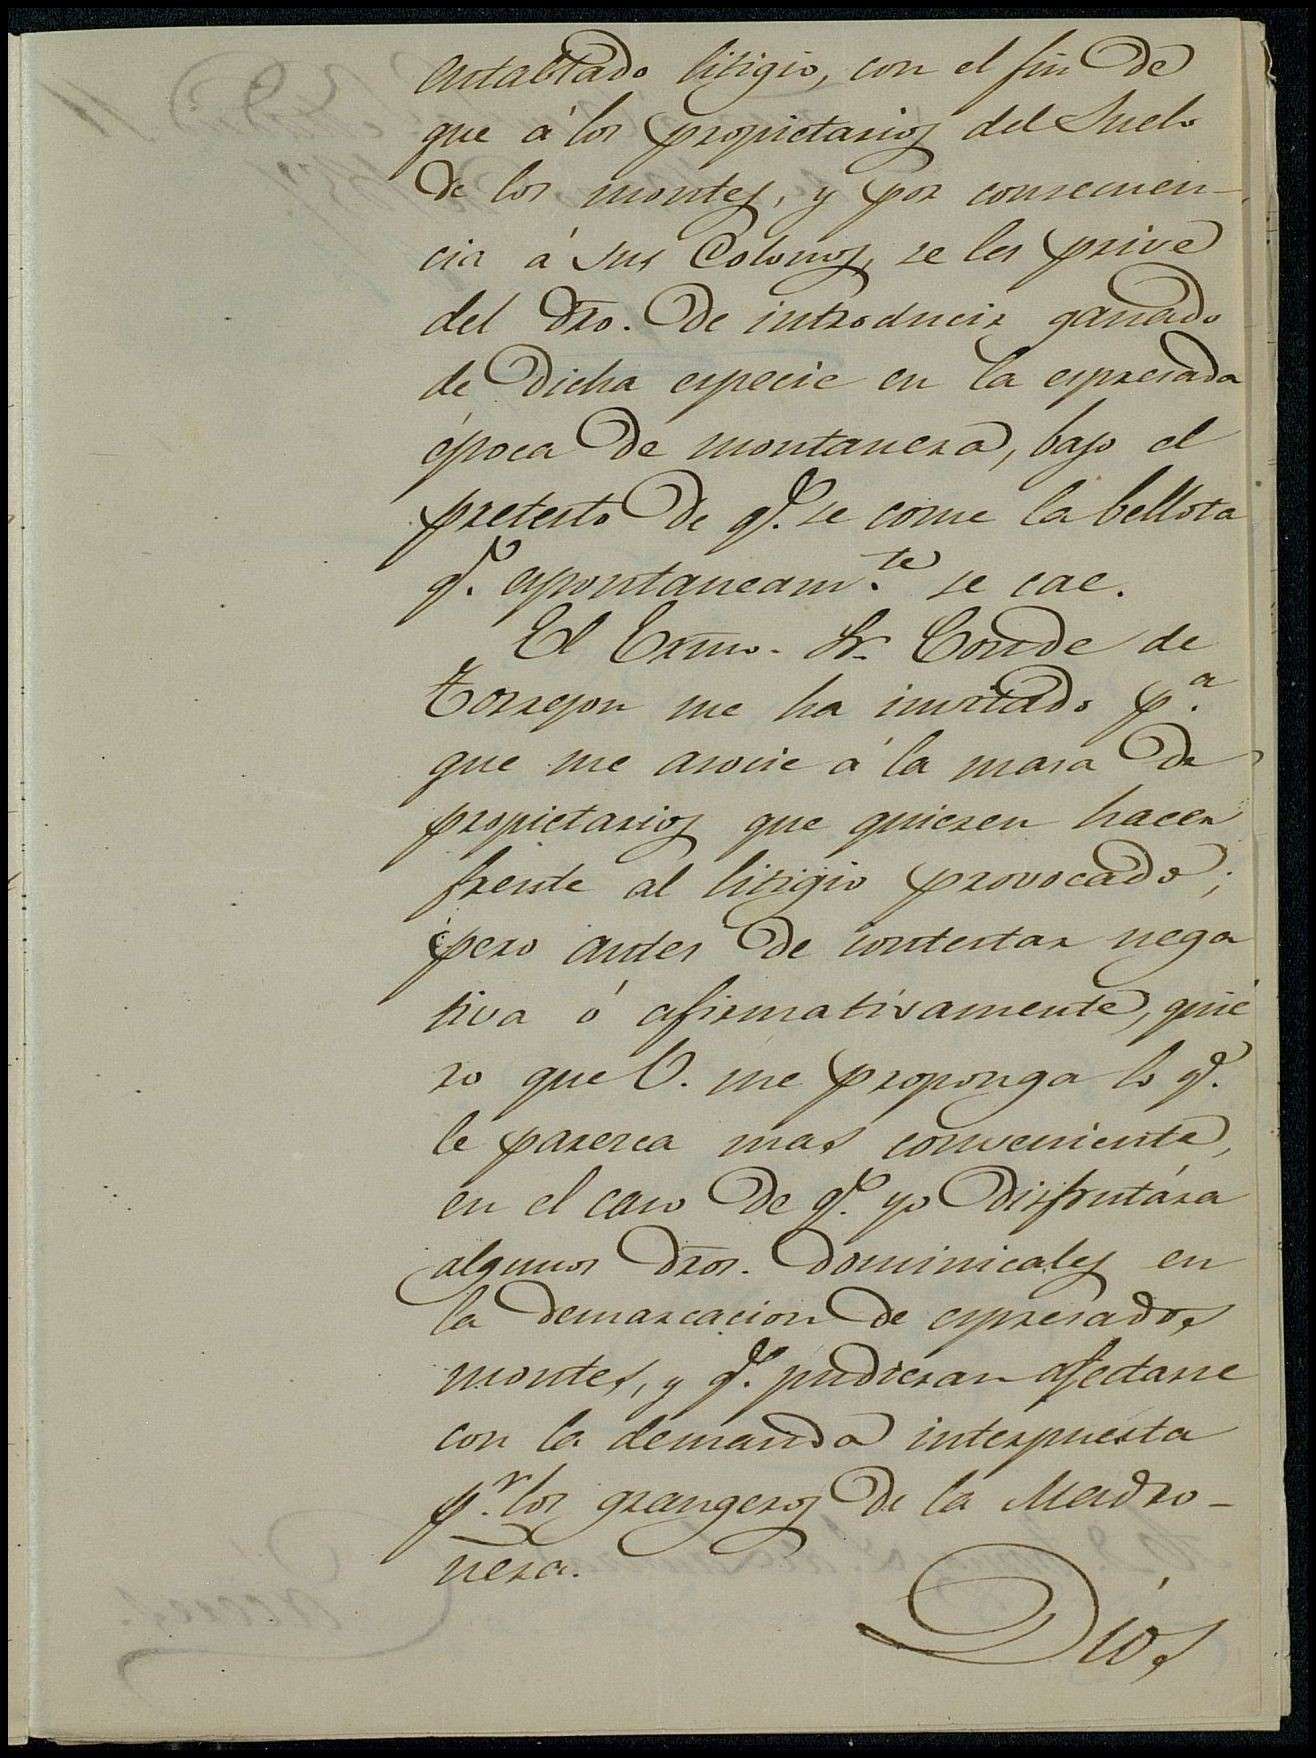 entablado litigio, con el fin de
que á los propietarios del Suelo
de los montes, y por consecuen-
cia á sus Colonos, se les prive
del dro. de introducir ganado
de dicha especie en la espresada
época de montanera, bajo el
pretesto de q.e se come la bellota
q.e espontaneam.te se cae.
El Exmo. Sr. Conde de
Torrejon me ha invitado p.a
que me asocie á la masa de
propietarios que quieren hacer
frente al litigio provocado;
pero antes de contestar nega
tiva ó afirmativamente, quie
ro que V. me proponga lo q.e
le parezca mas conveniente,
en el caso de q.e yo disfrutára
algunos dros. dominicales en
la demarcacion de espresados
montes, y q.e pudieran afectarse
con la demanda interpuesta
p.r los grangeros de la Madro-
ñera.
Dios